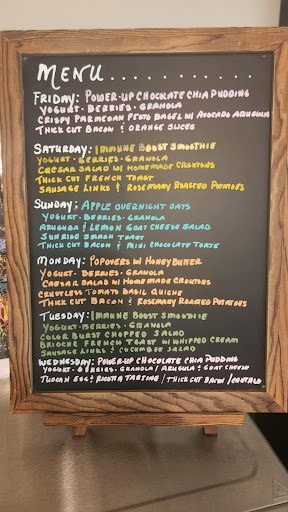 MENU.............
FRIDAY: POWER-UP CHOCOLATE CHIA PUDDING
YOGURT · BERRIES · GRANOLA
CRISPY PARMESAN PESTO BAGEL W/ AVOCADO ARUGULA
THICK CUT BACON & ORANGE SLICES
SATURDAY: IMMUNE BOOST SMOOTHIE
YOGURT · BERRIES · GRANOLA
CAESAR SALAD W/ HOMEMADE CROUTONS
THICK CUT FRENCH TOAST
SAUSAGE LINKS & ROSEMARY ROASTED POTATOES
SUNDAY: APPLE OVERNIGHT OATS
YOGURT · BERRIES · GRANOLA
ARUGULA & LEMON GOAT CHEESE SALAD
SUNRISE SMASH TOAST
THICK CUT BACON & MINI CHOCOLATE TORTE
MONDAY: POPOVERS W/ HONEY BUTTER
YOGURT · BERRIES · GRANOLA
CAESAR SALAD W/ HOMEMADE CROUTONS
CRUSTLESS TOMATO BASIL QUICHE
THICK CUT BACON & ROSEMARY ROASTED POTATOES
TUESDAY: IMMUNE BOOST SMOOTHIE
YOGURT · BERRIES · GRANOLA
COLOR BURST CHOPPED SALAD
BRIOCHE FRENCH TOAST W/ WHIPPED CREAM
SAUSAGE LINKS & CUCUMBER SALAD
WEDNESDAY: POWER-UP CHOCOLATE CHIA PUDDING
YOGURT · BERRIES · GRANOLA / ARUGULA & GOAT CHEESE
TUSCAN EGG & RICOTTA TARTINE / THICK CUT BACON /